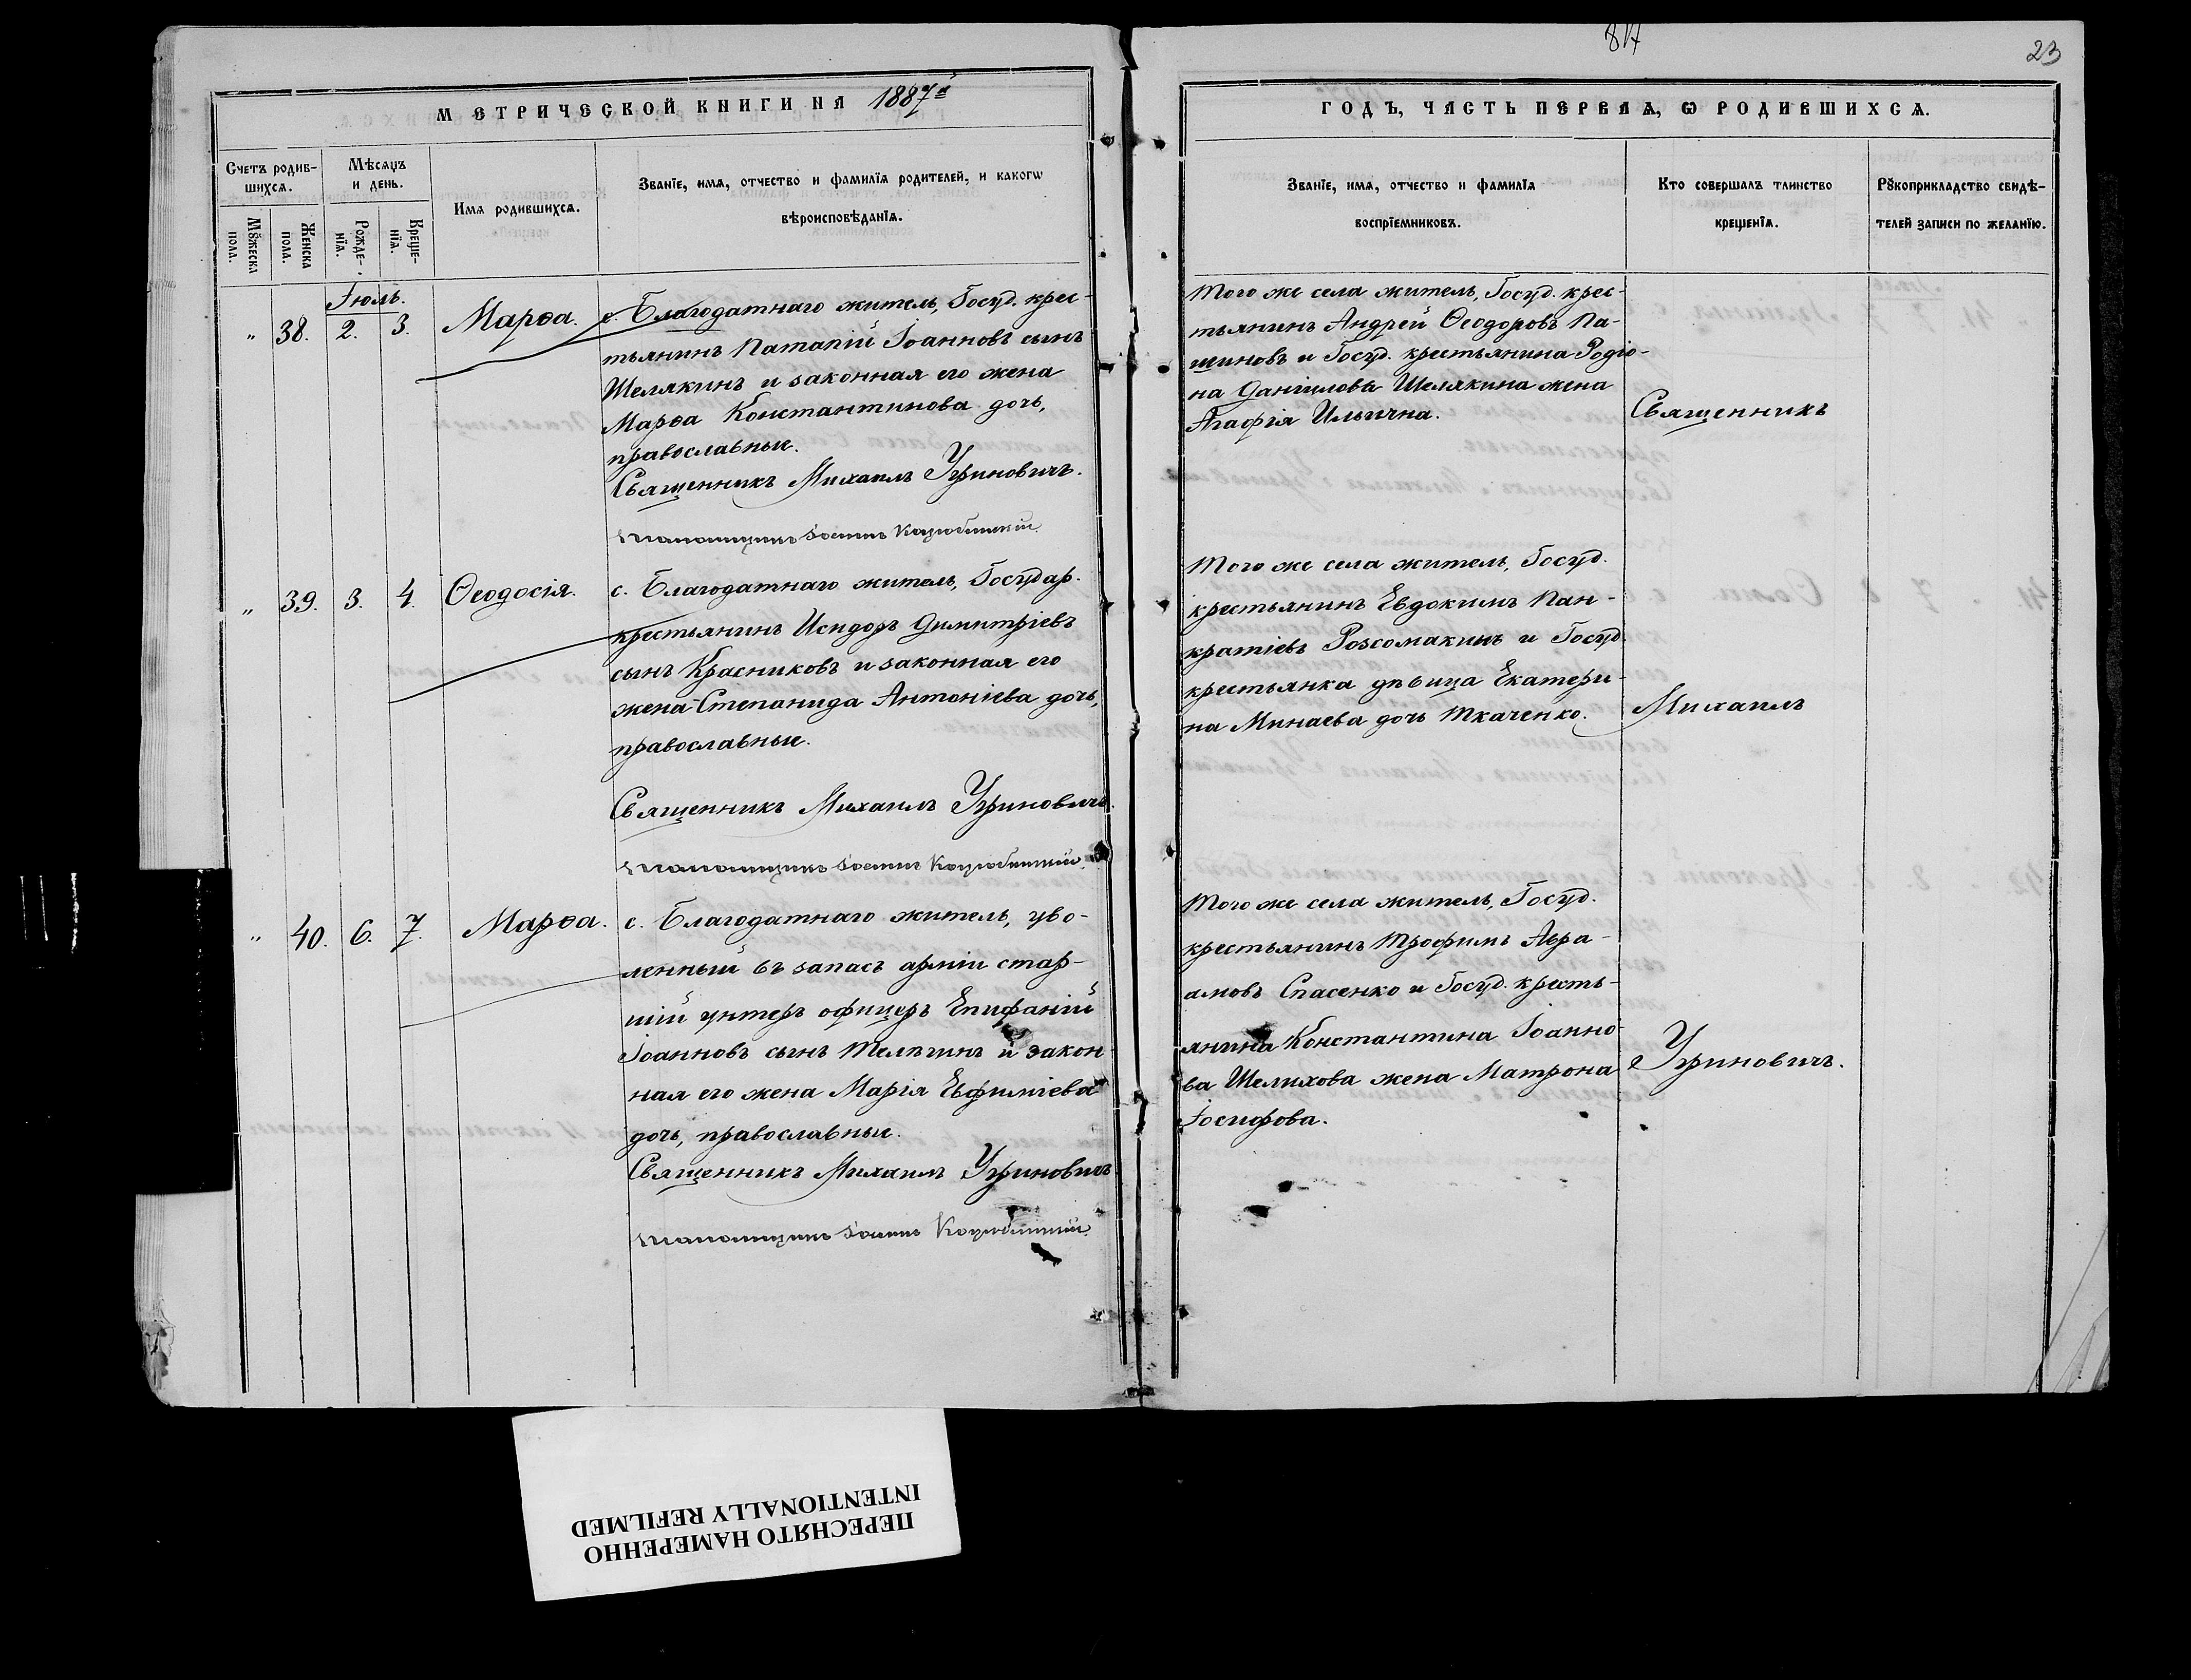 817
23
МЕТРИЧЕСКОЙ КНИГИ НА 1887й
ГОДЪ, ЧАСТЬ ПЕРВАЯ, Ѡ РОДИВШИХСѦ.
Счетъ родив-
шихсѧ.
Мѣсяцъ
и день.
Имѧ родившихсѧ.
Званїе, имѧ, отчество и фамилїѧ родителей, и какогѡ
вѣроисповѣданїѧ.
Мꙋжеска
пола.
Женска
пола.
Рожде-
нїѧ.
Креще-
нїѧ.
Званїе, имѧ, отчество и фамилїѧ
воспрїемниковъ.
Кто совершалъ таинство
крещенїѧ.
Рꙋкоприкладство свидѣ-
телей записи по желанїю.
Іюль.
" 38. 2. 3. Марѳа.
с. Благодатнаго житель, Госуд. крес-
тьянинъ Патапій Іоанновъ сынъ
Шелякинъ и законная его жена
Марѳа Константинова дочь,
православные.
Священникъ Михаилъ Угриновичъ.
Псаломщикъ
Того же села житель, Госуд. крес-
тьянинъ Андрей Ѳеодоровъ Па-
шиновъ и Госуд. крестьянина Родіо-
на Даніилова Шелякина жена
Агафія Ильична.
Священникъ
" 39. 3. 4. Ѳеодосія.
с. Благодатнаго житель, Государ.
крестьянинъ Исидоръ Димитріевъ
сынъ Красниковъ и законная его
жена Степанида Антоніева дочь,
православные.
Священникъ Михаилъ Угриновичъ.
Псаломщикъ
Того же села житель, Госуд.
крестьянинъ Евдокимъ Пан-
кратіевъ Розсомакинъ и Госуд.
крестьянка дѣвица Екатери-
на Минаева дочь Ткаченко.
Михаилъ
" 40. 6. 7. Марѳа.
с. Благодатнаго житель, уво-
ленный въ запасъ арміи стар-
шій унтеръ офицеръ Епифаній
Іоанновъ сынъ Телѣгинъ и закон-
ная его жена Марія Евфиміева
дочь, православные.
Священникъ Михаилъ Угриновичъ
Псаломщикъ
Того же села житель, Госуд.
крестьянинъ Трофимъ Авра-
амовъ Спасенко и Госуд. кресть-
янина Константина Іоанно-
ва Шелихова жена Матрона
Іосифова.
Угриновичъ.
ПЕРЕСНЯТО НАМЕРЕННО
INTENTIONALLY REFILMED